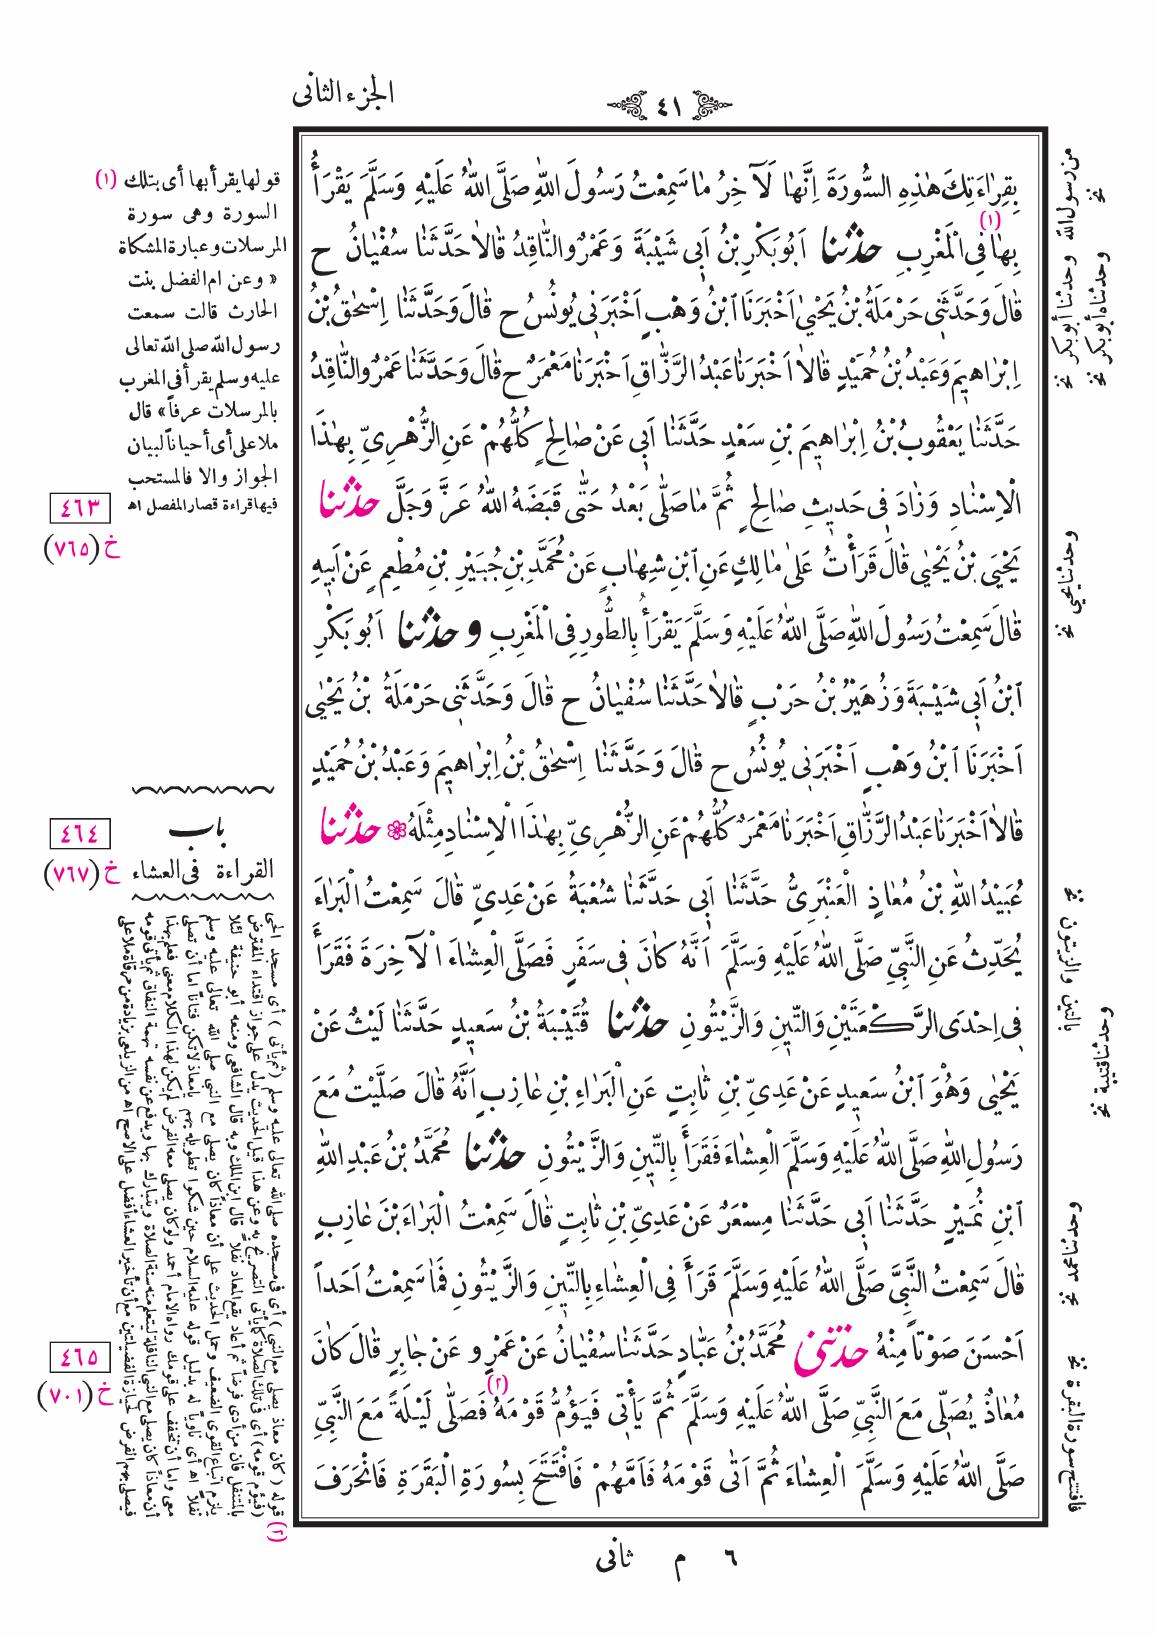 الجزء الثانى
٤١
بِقِرَاءَتِكَ هٰذِهِ السُّورَةَ اِنَّهَا لَآخِرُ مَا سَمِعْتُ رَسُولَ اللهِ صَلَّى اللهُ عَلَيْهِ وَسَلَّمَ يَقْرَأُ
بِهَا فِى الْمَغْرِبِ (١) حدثنا اَبُوبَكْرِ بْنُ اَبِى شَيْبَةَ وَعَمْرٌو النَّاقِدُ قَالَا حَدَّثَنَا سُفْيَانُ ح
قَالَ وَحَدَّثَنِى حَرْمَلَةُ بْنُ يَحْيٰى اَخْبَرَنَا ابْنُ وَهْبٍ اَخْبَرَنِى يُونُسُ ح قَالَ وَحَدَّثَنَا اِسْحٰقُ بْنُ
اِبْرَاهِيمَ وَعَبْدُ بْنُ حُمَيْدٍ قَالَا اَخْبَرَنَا عَبْدُ الرَّزَّاقِ اَخْبَرَنَا مَعْمَرٌ ح قَالَ وَحَدَّثَنَا عَمْرٌو النَّاقِدُ
حَدَّثَنَا يَعْقُوبُ بْنُ اِبْرَاهِيمَ بْنِ سَعْدٍ حَدَّثَنَا اَبِى عَنْ صَالِحٍ كُلُّهُمْ عَنِ الزُّهْرِىِّ بِهٰذَا
الْاِسْنَادِ وَزَادَ فِى حَدِيثِ صَالِحٍ ثُمَّ مَا صَلّٰى بَعْدُ حَتّٰى قَبَضَهُ اللهُ عَزَّ وَجَلَّ حدثنا
يَحْيَى بْنُ يَحْيٰى قَالَ قَرَأْتُ عَلٰى مَالِكٍ عَنِ ابْنِ شِهَابٍ عَنْ مُحَمَّدِ بْنِ جُبَيْرِ بْنِ مُطْعِمٍ عَنْ اَبِيهِ
قَالَ سَمِعْتُ رَسُولَ اللهِ صَلَّى اللهُ عَلَيْهِ وَسَلَّمَ يَقْرَأُ بِالطُّورِ فِى الْمَغْرِبِ وحدثنا اَبُوبَكْرِ
ابْنُ اَبِى شَيْبَةَ وَزُهَيْرُ بْنُ حَرْبٍ قَالَا حَدَّثَنَا سُفْيَانُ ح قَالَ وَحَدَّثَنِى حَرْمَلَةُ بْنُ يَحْيٰى
اَخْبَرَنَا ابْنُ وَهْبٍ اَخْبَرَنِى يُونُسُ ح قَالَ وَحَدَّثَنَا اِسْحٰقُ بْنُ اِبْرَاهِيمَ وَعَبْدُ بْنُ حُمَيْدٍ
قَالَا اَخْبَرَنَا عَبْدُ الرَّزَّاقِ اَخْبَرَنَا مَعْمَرٌ كُلُّهُمْ عَنِ الزُّهْرِىِّ بِهٰذَا الْاِسْنَادِ مِثْلَهُ حدثنا
عُبَيْدُ اللهِ بْنُ مُعَاذٍ الْعَنْبَرِىُّ حَدَّثَنَا اَبِى حَدَّثَنَا شُعْبَةُ عَنْ عَدِىٍّ قَالَ سَمِعْتُ الْبَرَاءَ
يُحَدِّثُ عَنِ النَّبِىِّ صَلَّى اللهُ عَلَيْهِ وَسَلَّمَ اَنَّهُ كَانَ فِى سَفَرٍ فَصَلَّى الْعِشَاءَ الْآخِرَةَ فَقَرَأَ
فِى اِحْدَى الرَّكْعَتَيْنِ وَالتِّينِ وَالزَّيْتُونِ حدثنا قُتَيْبَةُ بْنُ سَعِيدٍ حَدَّثَنَا لَيْثٌ عَنْ
يَحْيٰى وَهُوَ ابْنُ سَعِيدٍ عَنْ عَدِىِّ بْنِ ثَابِتٍ عَنِ الْبَرَاءِ بْنِ عَازِبٍ اَنَّهُ قَالَ صَلَّيْتُ مَعَ
رَسُولِ اللهِ صَلَّى اللهُ عَلَيْهِ وَسَلَّمَ الْعِشَاءَ فَقَرَأَ بِالتِّينِ وَالزَّيْتُونِ حدثنا مُحَمَّدُ بْنُ عَبْدِ اللهِ
ابْنِ نُمَيْرٍ حَدَّثَنَا اَبِى حَدَّثَنَا مِسْعَرٌ عَنْ عَدِىِّ بْنِ ثَابِتٍ قَالَ سَمِعْتُ الْبَرَاءَ بْنَ عَازِبٍ
قَالَ سَمِعْتُ النَّبِىَّ صَلَّى اللهُ عَلَيْهِ وَسَلَّمَ قَرَأَ فِى الْعِشَاءِ بِالتِّينِ وَالزَّيْتُونِ فَمَا سَمِعْتُ اَحَداً
اَحْسَنَ صَوْتاً مِنْهُ حدثنى مُحَمَّدُ بْنُ عَبَّادٍ حَدَّثَنَا سُفْيَانُ عَنْ عَمْرٍو عَنْ جَابِرٍ قَالَ كَانَ
مُعَاذٌ يُصَلِّى مَعَ النَّبِىِّ صَلَّى اللهُ عَلَيْهِ وَسَلَّمَ ثُمَّ يَأْتِى فَيَؤُمُّ قَوْمَهُ (٢) فَصَلّٰى لَيْلَةً مَعَ النَّبِىِّ
صَلَّى اللهُ عَلَيْهِ وَسَلَّمَ الْعِشَاءَ ثُمَّ اَتٰى قَوْمَهُ فَاَمَّهُمْ فَافْتَتَحَ بِسُورَةِ الْبَقَرَةِ فَانْحَرَفَ
٦ م ثانى
من رسول الله نخ
وحدثنا أبوبكر نخ
وحدثناه أبوبكر نخ
وحدثنا يحيى نخ
بالتين والزيتون نخ
وحدثنا قتيبة نخ
وحدثنا محمد نخ
فافتتح سورة البقرة نخ
(١) قولها يقرأ بها أى بتلك
السورة وهى سورة
المرسلات وعبارة المشكاة
« وعن ام الفضل بنت
الحارث قالت سمعت
رسول الله صلى الله تعالى
عليه وسلم يقرأ فى المغرب
بالمرسلات عرفاً » قال
ملا على أى أحياناً لبيان
الجواز والا فالمستحب
فيها قراءة قصار المفصل اه
٤٦٣
خ (٧٦٥)
باب
القراءة فى العشاء
٤٦٤
خ (٧٦٧)
٤٦٥
خ (٧٠١)
(٢) قوله ( كان معاذ يصلى مع النبى ) أى فى مسجده صلى الله تعالى عليه وسلم ( ثم يأتى ) أى مسجد الحى
( فيؤم قومه ) أى فى تلك الصلاة كما يأتى التصريح به وعن هذا قيل الحديث يدل على جواز اقتداء المفترض